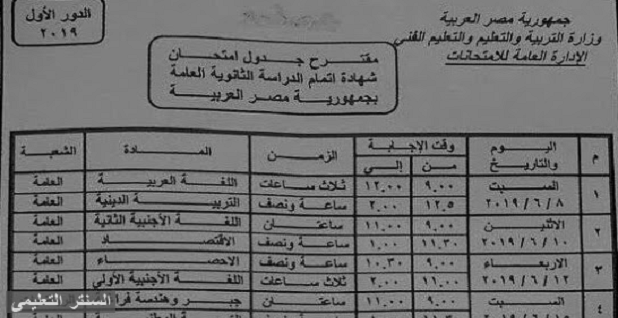 جمهورية مصر العربية
وزارة التربية والتعليم والتعليم الفنى
الإدارة العامة للامتحانات
الدور الأول
٢٠١٩
مقترح جدول امتحان
شهادة اتمام الدراسة الثانوية العامة
بجمهورية مصر العربية
م اليوم والتاريخ وقت الإجابة من إلى الزمن المادة الشعبة
١ السبت ٩,٠٠ ١٢,٠٠ ثلاث ساعات اللغة العربية العامة
٢٠١٩/٦/٨ ١٢,٥ ٢,٠٠ ساعة ونصف التربية الدينية العامة
٢ الاثنين ٩,٠٠ ١١,٠٠ ساعتان اللغة الأجنبية الثانية العامة
٢٠١٩/٦/١٠ ١١,٣٠ ١,٠٠ ساعة ونصف الاقتصاد العامة
٣ الاربعاء ٩,٠٠ ١٠,٣٠ ساعة ونصف الاحصاء العامة
٢٠١٩/٦/١٢ ١١,٠٠ ٢,٠٠ ثلاث ساعات اللغة الأجنبية الأولي العامة
٤ السبت ٩,٠٠ ١١,٠٠ ساعتان جبر وهندسة
السنتر التعليمى